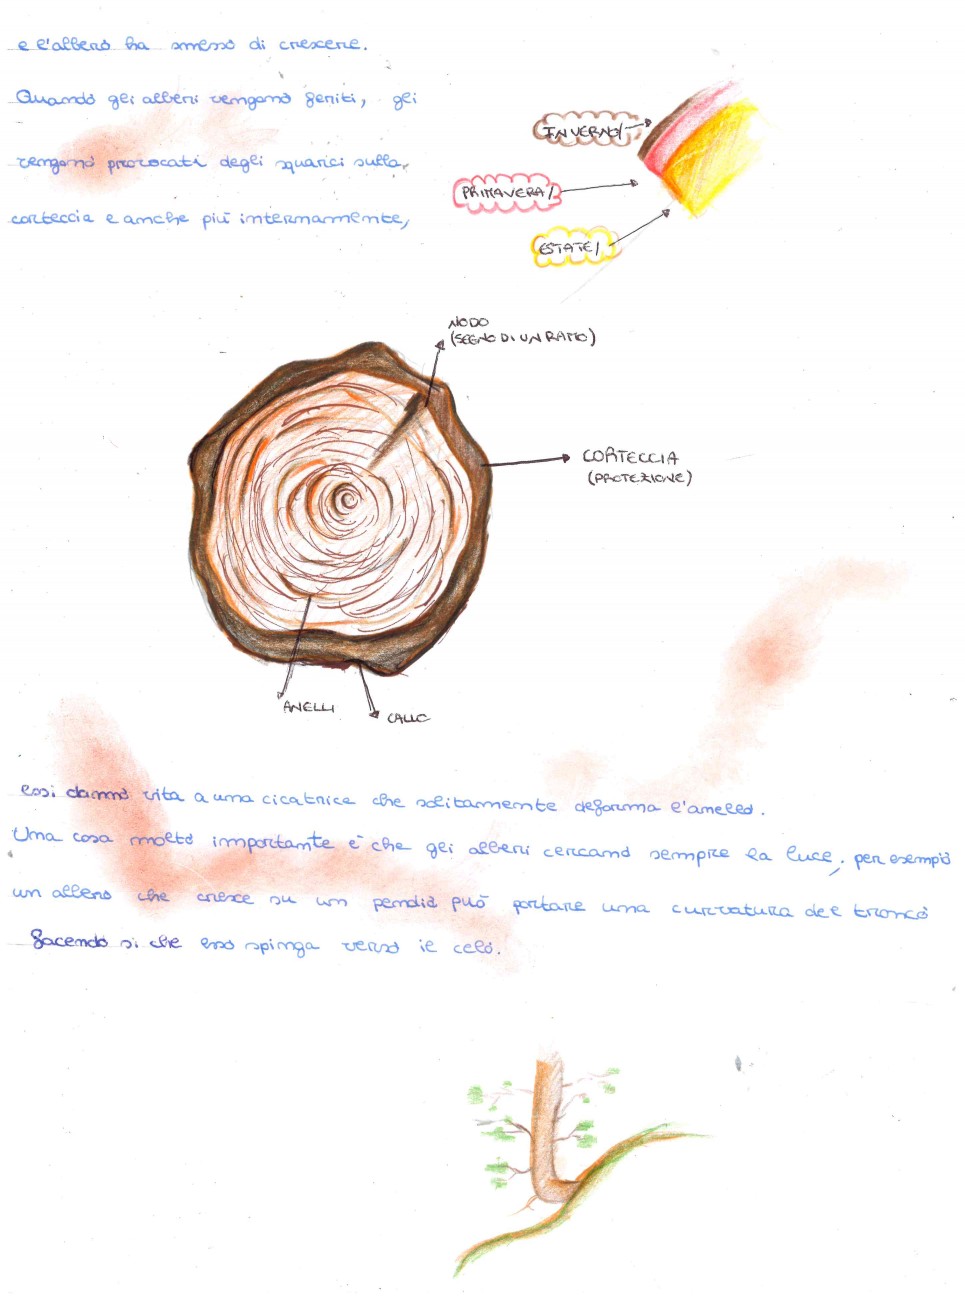 e l'albero ha smesso di crescere.
Quando gli alberi vengono feriti, gli
vengono provocati degli squarici sulla
corteccia e anche più internamente,
INVERNO/
PRIMAVERA/
ESTATE/
NODO
(SEGNO DI UN RAMO)
CORTECCIA
(PROTEZIONE)
ANELLI
CALLO
così danno vita a una cicatrice che solitamente deforma l'anello.
Una cosa molto importante è che gli alberi cercano sempre la luce, per esempio
un albero che cresce su un pendio può portare una curvatura del tronco
facendo si che esso spinga verso il celo.